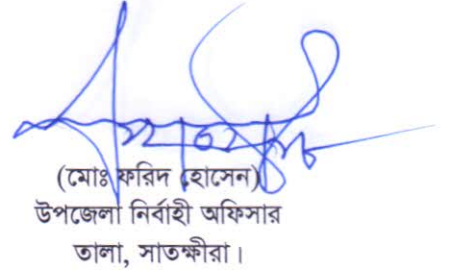 (মোঃ ফরিদ হোসেন)
উপজেলা নির্বাহী অফিসার
তালা, সাতক্ষীরা।